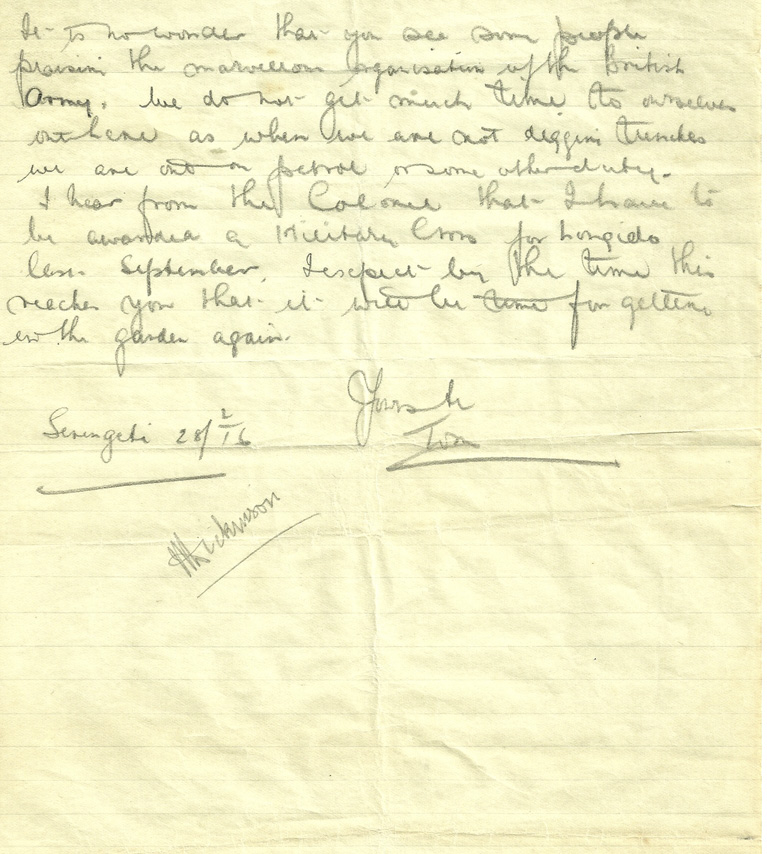 It is no wonder that you see some people
praising the marvellous organisation of the British
Army. We do not get much time to ourselves
out here as when we are not digging trenches
we are out on patrol or some other duty.
I hear from the Colonel that I have to
be awarded a Military Cross for Longido
last September. I expect by the time this
reaches you that it will be time for getting
in the garden again.
Yours
Tom
Serengeti 28/2/16
Dickinson